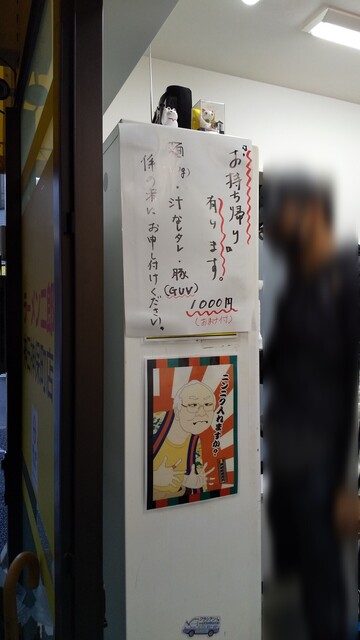 お持ち帰り
有ります。
麺(生)・汁なしタレ・豚
(GUV)
1000円
(おまけ付)
係の者にお申し付けください。
ニンニク入れますか?
ラーメン二郎